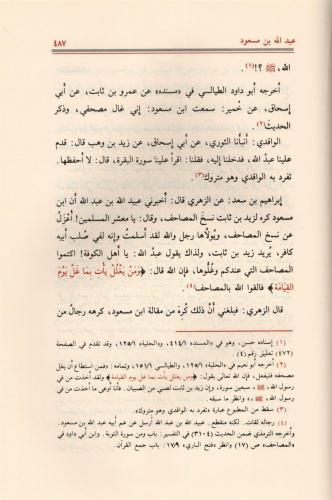 عبد الله بن مسعود
٤٨٧
الله، ﷺ ؟!(١).
أخرجه أبو داود الطيالسي في «مسنده» عن عمرو بن ثابت، عن أبي
إسحاق، عن خُمير: سمعت ابن مسعود: إني غال مصحفي، وذكر
الحديث(٢).
الواقدي: أنبأنا الثوري، عن أبي إسحاق، عن زيد بن وهب قال: قدم
علينا عبدُ الله، فدخلنا إليه، فقلنا: اقرأ علينا سورة البقرة، قال: لا أحفظها.
تفرد به الواقدي وهو متروك(٣).
إبراهيم بن سعد: عن الزهري قال: أخبرني عبيد الله بن عبد الله أن ابن
مسعود كره لزيد بن ثابت نسخ المصاحف، وقال: يا معشر المسلمين! أُعْزَلُ
عن نسخ المصاحف، ويُولّاها رجل والله لقد أسلمتُ وإنه لفي صُلب أبيه
كافر، يُريد زيد بن ثابت، ولذاك يقول عبدُ الله: يا أهل الكوفة! اكتموا
المصاحف التي عندكم وغُلُّوها، فإن الله قال: ﴿وَمَنْ يَغْلُلْ يَأْتِ بِمَا غَلَّ يَوْمَ
القِيَامَة﴾ فالقوا الله بالمصاحف(٤).
قال الزهري: فبلغني أنَّ ذلك كُره من مقالة ابن مسعود، كرهه رجالٌ من
(١) إسناده حسن، وهو في «المسند» ٤١٤/١، و«الحلية» ١٢٥/١، وقد تقدم في الصفحة
(٤٧٢) تعليق رقم (٤).
(٢) أخرجه أبو نعيم في «الحلية» ١٢٥/١، والطيالسي ١٥١/٢، وتمامه: «فمن استطاع أن يغل
مصحفه فليفعل، فإن الله تعالى يقول: ﴿ومن يغلل يأت بما غل يوم القيامة﴾ ولقد أخذت من في
رسول الله، ﷺ، سبعين سورة، وإن زيد بن ثابت لصبي من الصبيان. فأنا أدع ما أخذت من في
رسول الله، ﷺ،» وانظر ما سبقه.
(٣) سقط من المطبوع عبارة «تفرد به الواقدي وهو متروك».
(٤) رجاله ثقات. لكنه منقطع. عبيد الله بن عبد الله أرسل عن عم أبيه عبد الله بن مسعود.
وأخرجه الترمذي ضمن الحديث (٣١٠٤) في التفسير: باب ومن سورة التوبة. وابن أبي داود في
«المصاحف» ص (١٧) وانظر «فتح الباري» ١٧/٩ باب جمع القرآن.